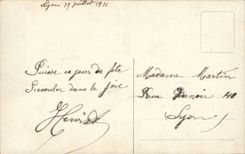 Lyon 19 juillet 1911
Puisse ce jour de fête
s'écouler dans la joie
Madame Martin
Rue 40
Lyon